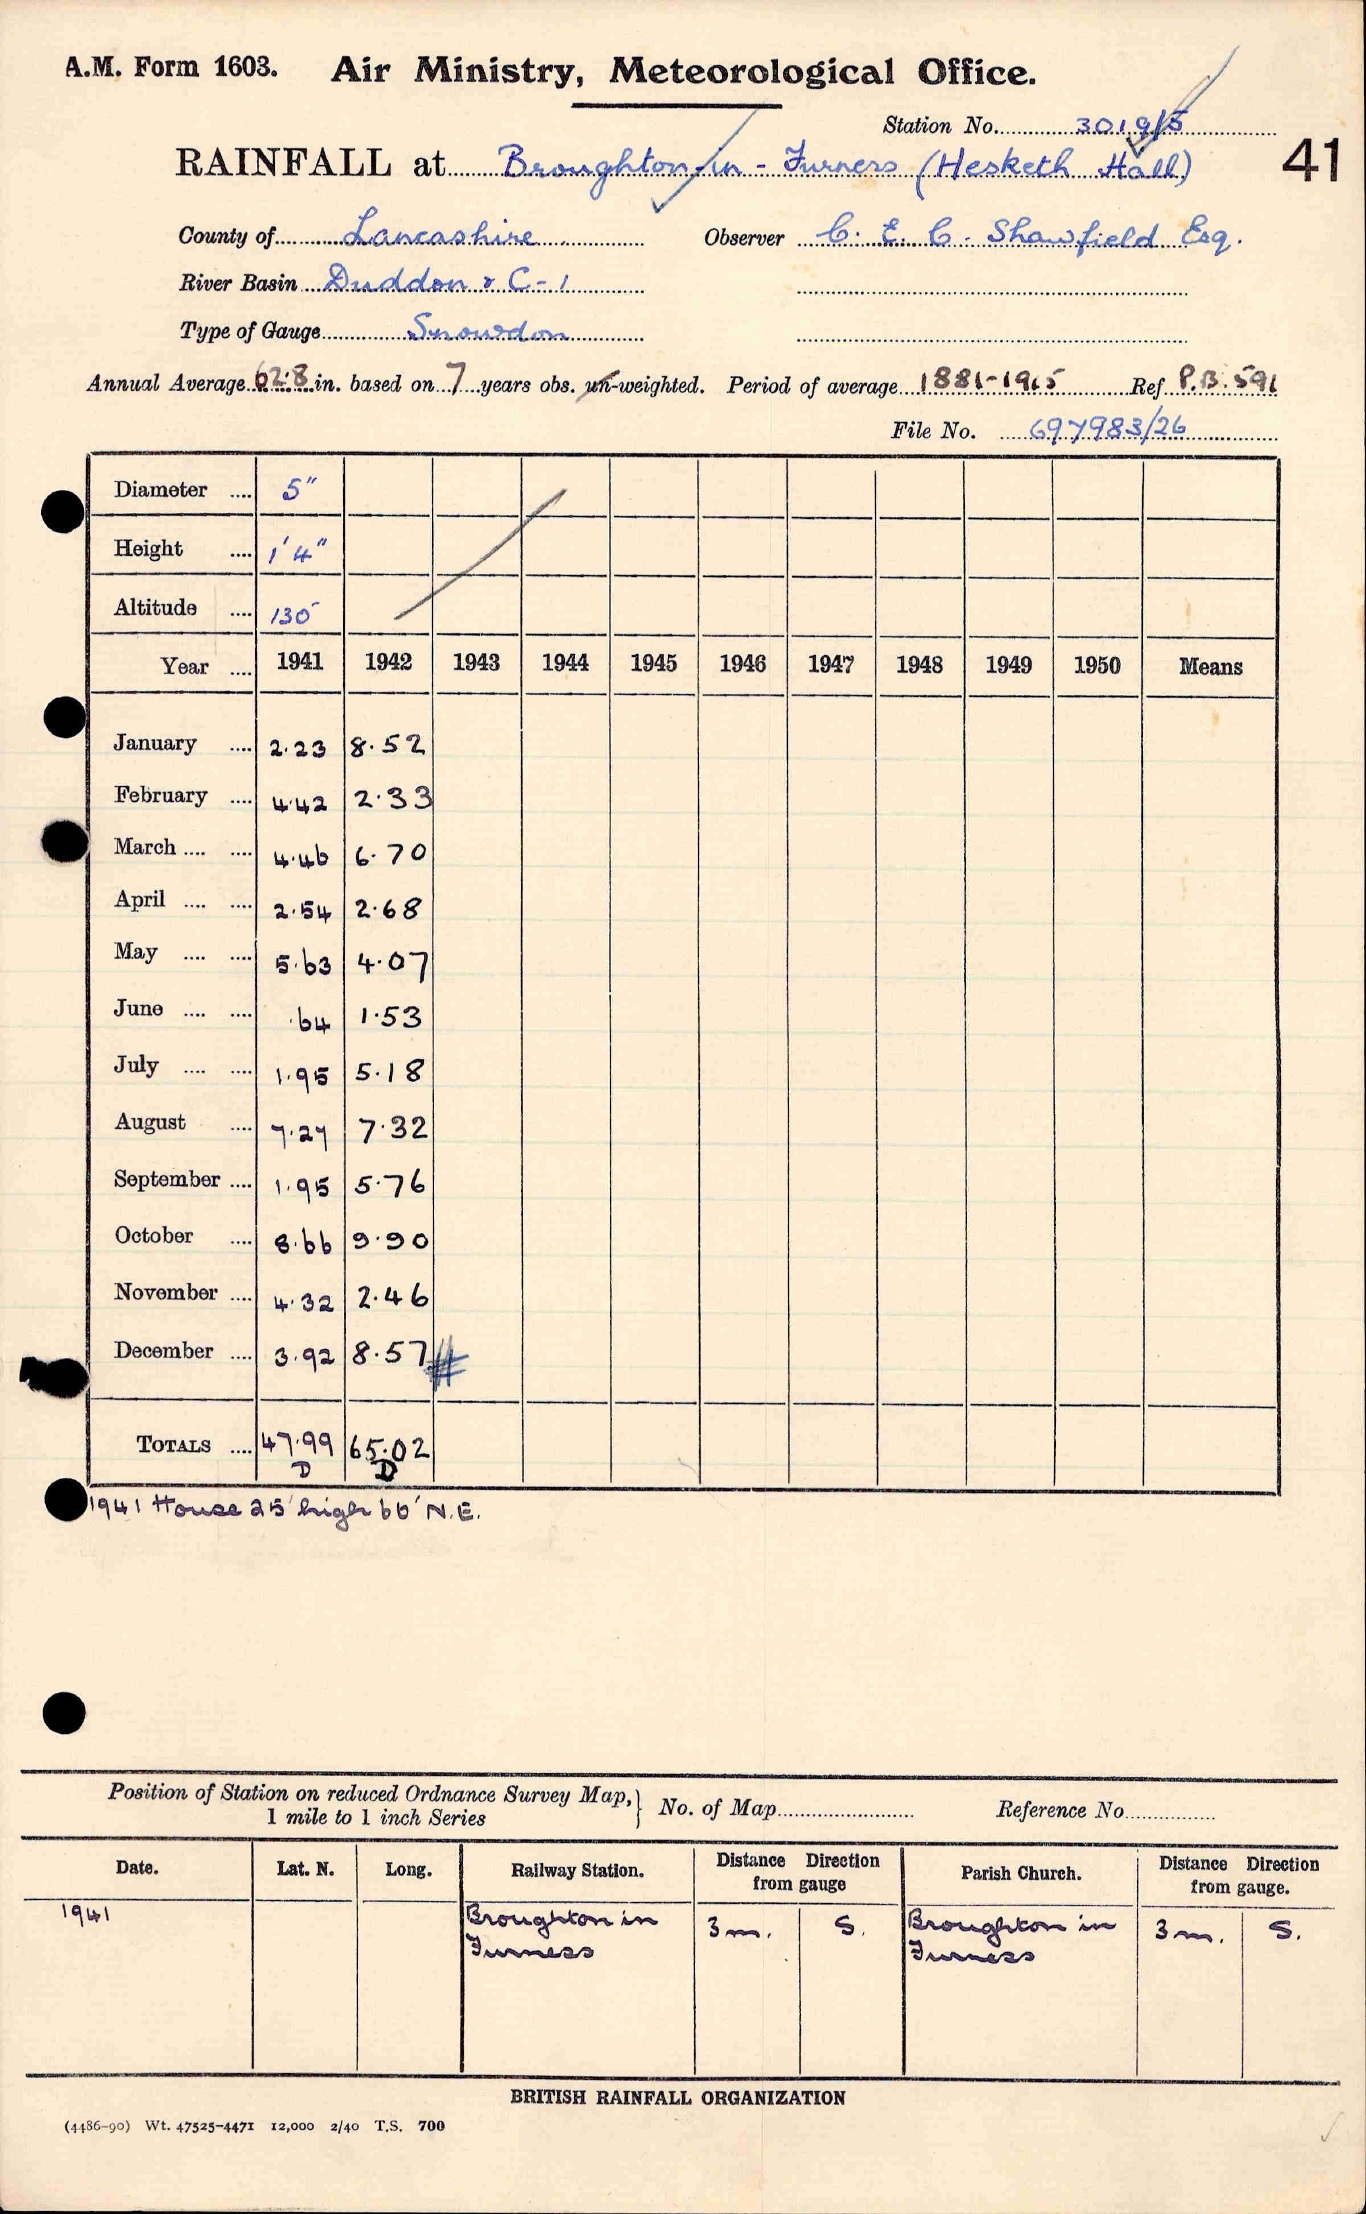 A.M. Form 1603. Air Ministry, Meteorological Office.
Station No. 3019/5
RAINFALL at Broughton-in-Furness (Hesketh Hall) 41
County of Lancashire Observer C. E. C. Shawfield Esq.
River Basin Duddon & C-1
Type of Gauge Snowdon
Annual Average 62.8 in. based on 7 years obs. un-weighted. Period of average 1881-1915 Ref P.B. 591
File No. 697983/26
Diameter .... 5"
Height .... 1' 4"
Altitude .... 130'
Year .... 1941 1942 1943 1944 1945 1946 1947 1948 1949 1950 Means
January .... 2.23 8.52
February .... 4.42 2.33
March .... .... 4.46 6.70
April .... .... 2.54 2.68
May .... .... 5.63 4.07
June .... .... .64 1.53
July .... .... 1.95 5.18
August .... 7.27 7.32
September .... 1.95 5.76
October .... 8.66 9.90
November .... 4.32 2.46
December .... 3.92 8.57 #
TOTALS .... 47.99 65.02
D D
1941 House 25' high 60' N.E.
Position of Station on reduced Ordnance Survey Map, } No. of Map Reference No.
1 mile to 1 inch Series
Date. Lat. N. Long. Railway Station. Distance Direction from gauge Parish Church. Distance Direction from gauge.
1941 Broughton in 3 m. S. Broughton in 3 m. S.
Furness Furness
BRITISH RAINFALL ORGANIZATION
(4486-90) Wt. 47525-4471 12,000 2/40 T.S. 700